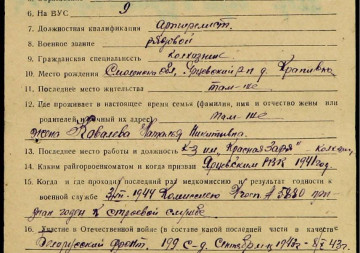 6. На ВУС 9
7. Должностная квалификация
8. Военное звание рядовой
9. Гражданская специальность колхозник
10. Место рождения Смоленская обл., Ярцевский р-н д. Крапивна
11. Последнее место жительства там-же
12. Где проживает в настоящее время семья (фамилия, имя и отчество жены или
родителей, точный их адрес) там-же
жена Ковалева Наталья Никитична.
13. Последнее место работы и должность К-з им. "Красная Заря" - колхозник
14. Каким райгорвоенкоматом и когда призван Ярцевским РВК 1941 год.
15. Когда и где проходил последний раз медкомиссию и результат годности к
военной службе 1944 Комиссией № 5880 при-
знан годен к строевой службе
16. Участие в Отечественной войне (в составе какой последней части и в качестве
Белорусский фронт, 199 с-д. Сентябрь 1943г -